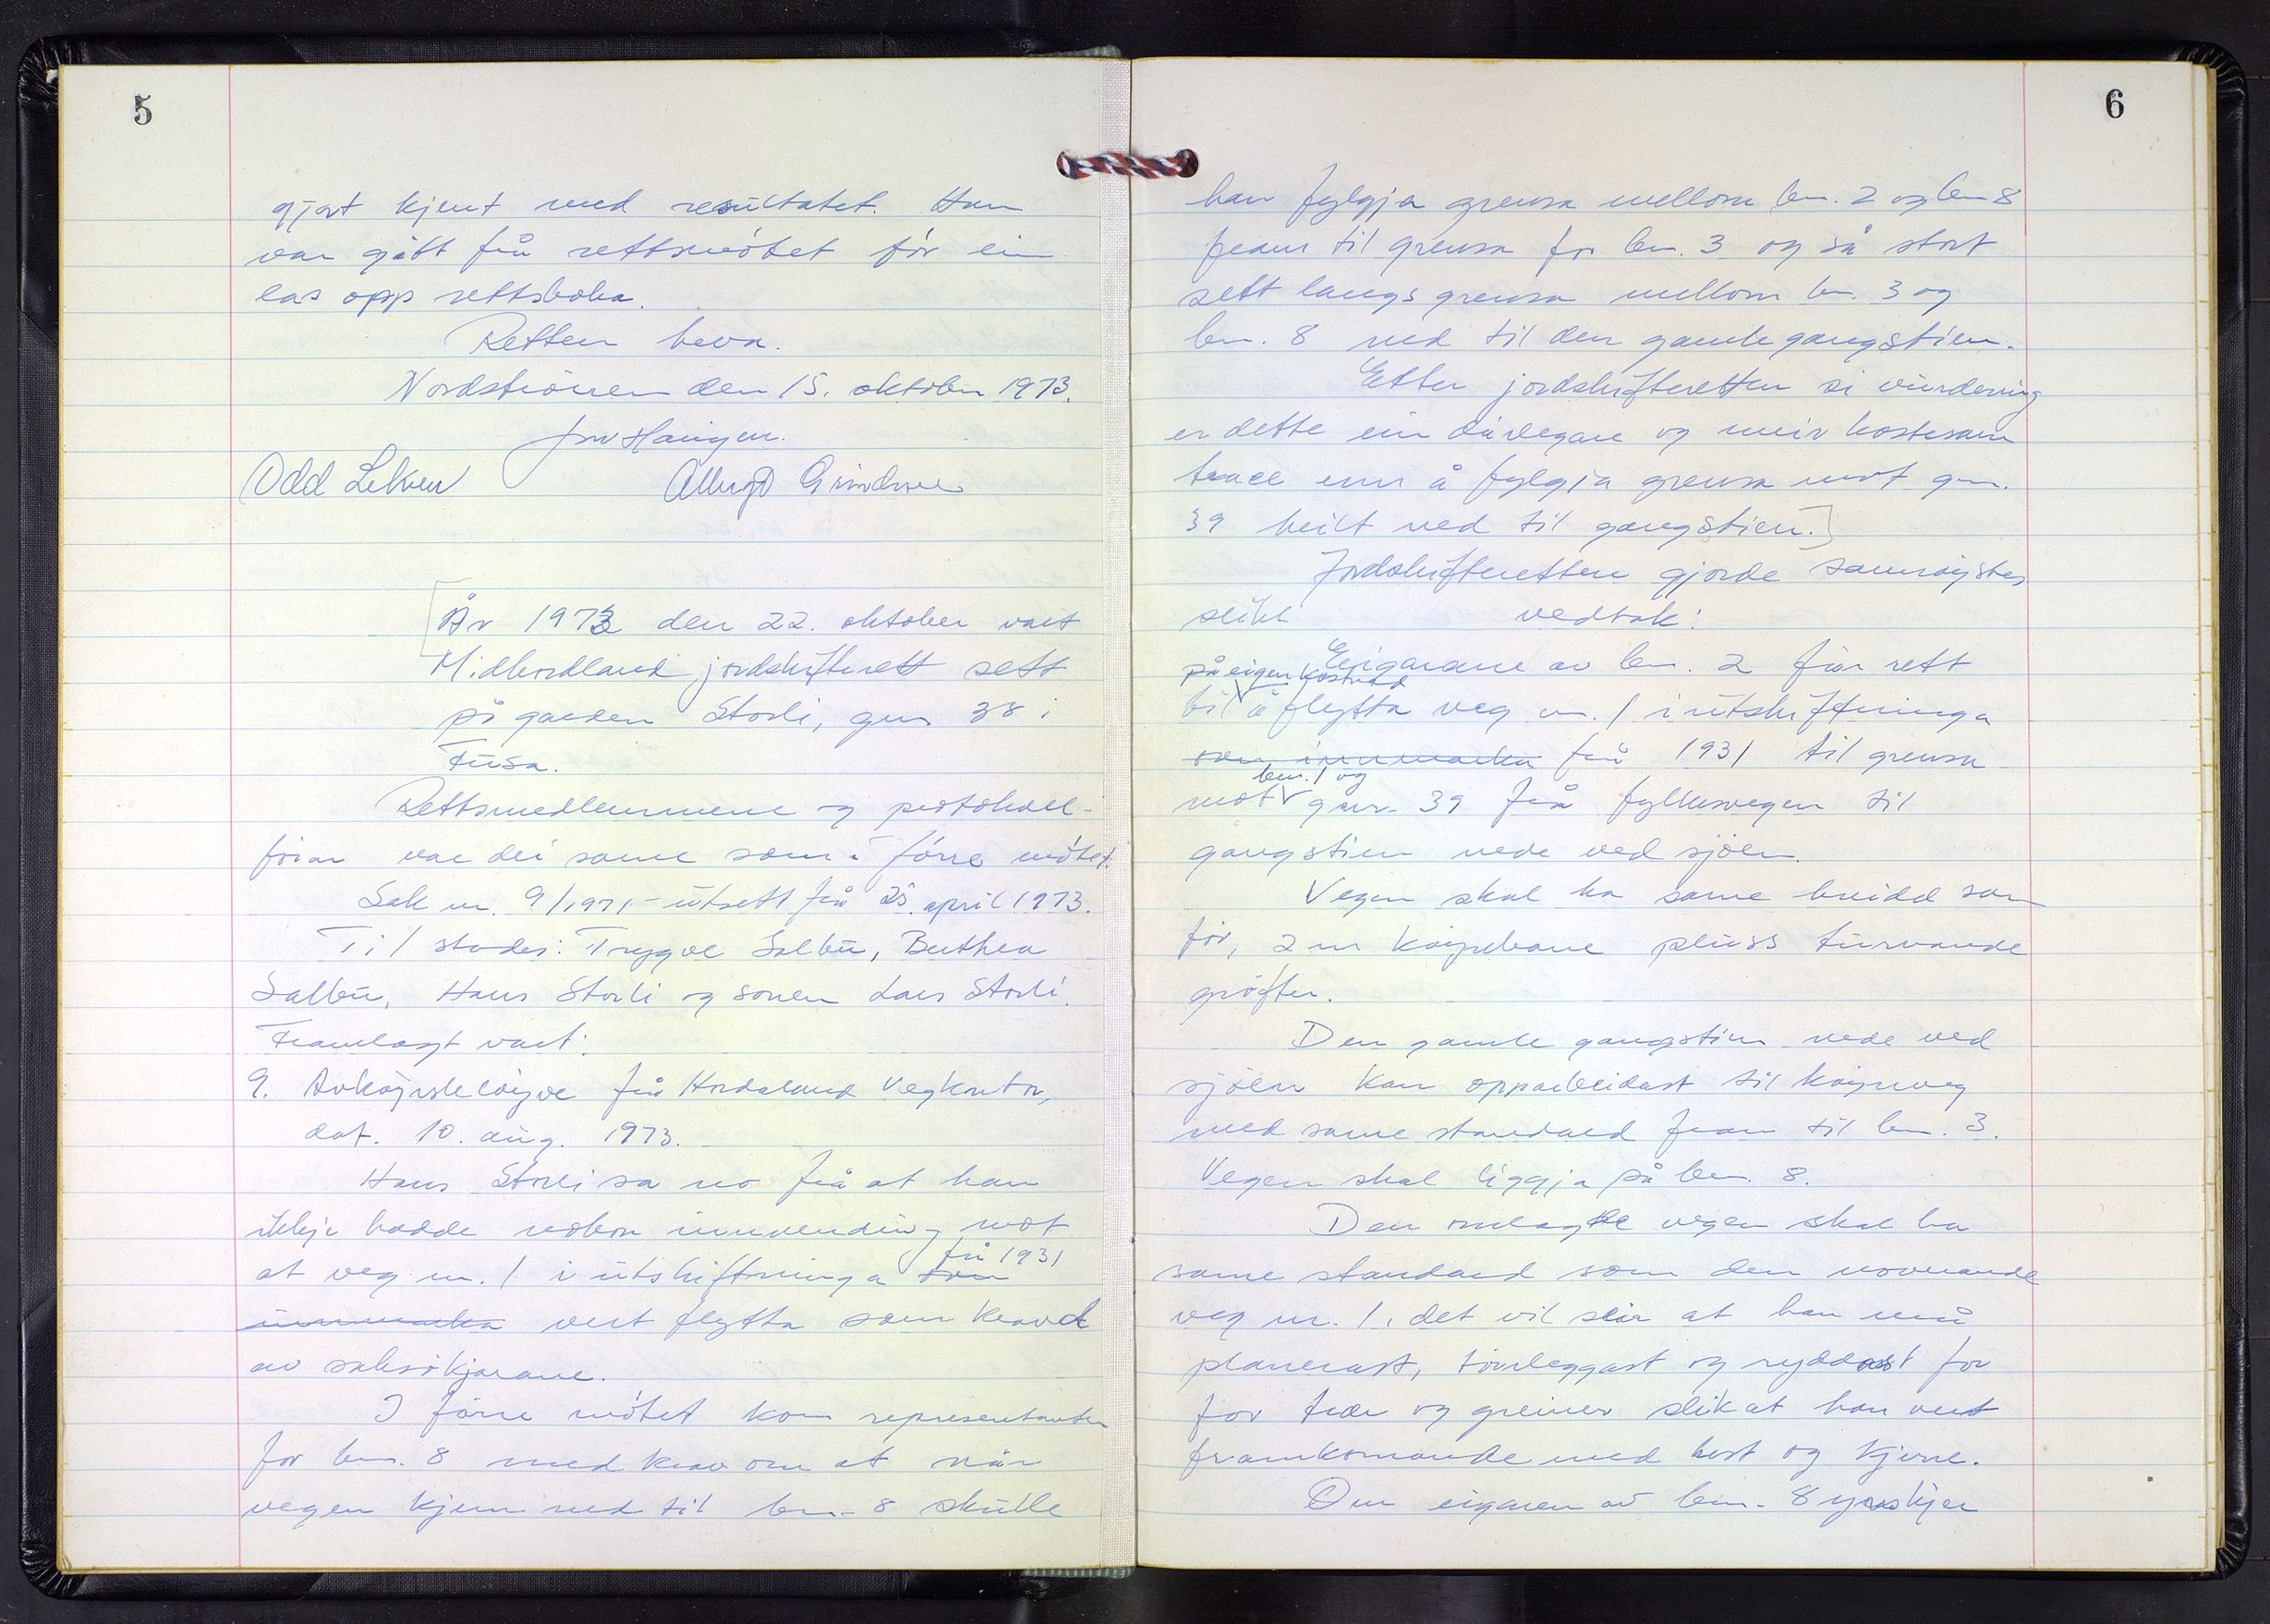 5
gjort kjent med resultatet. Han
var gått frå rettsmötet för ein
las opp rettsboka.
Retten heva.
Nordströnen den 15. oktober 1973.
Jon Haugen.
Odd Lekven
År 1973 den 22. oktober vart
Midhordland jordskifterett sett
på garden Storli, gnr 38 i
Fusa.
Rettsmedlemmene og protokoll-
förar var dei same som i förre mötet.
Sak nr. 9/1971 - utsett frå 25. april 1973.
Til stades: Trygve Salbu, Berthea
Salbu, Hans Storli og sonen Lars Storli.
Framlagt vart:
9. Avköyrsleløyve frå Hordaland Vegkontor,
dat. 10. aug. 1973.
Hans Storli sa no frå at han
ikkje hadde nokon innvending mot
at veg nr. 1 i utskiftninga son frå 1931
innmarka vert flytta som kravd
av saksökjarane.
I förre mötet kom representanten
for bnr. 8 med krav om at når
vegen kjem ned til bnr. 8 skulle
6
han fylgja grensa mellom bnr. 2 og bnr 8
fram til grensa for bnr. 3 og så stort
sett langs grensa mellom bnr. 3 og
bnr. 8 ned til den gamle gangstien.
Etter jordskifteretten si vurdering
er dette ein dårlegare og meir kostesam
trace enn å fylgja grensa mot gnr.
39 heilt ned til gangstien.
Jordskifteretten gjorde samröystes
slikt vedtak:
Eigarane av bnr. 2 får rett
på eigen kostnad
til å flytta veg nr. 1 i utskiftninga
over innmarka frå 1931 til grensa
bnr. 1 og
mot gnr. 39 frå fylkesvegen til
gangstien nede ved sjöen.
Vegen skal ha same breidd som
för, 2 m köyrebane pluss turvande
gröfter.
Den gamle gangstien nede ved
sjöen kan opparbeidast til köyreveg
med same standard fram til bnr. 3.
Vegen skal liggja på bnr. 8.
Den omlagde vegen skal ha
same standard som den noverande
veg nr. 1, det vil seia at han må
planerast, törrleggast og ryddast for
for tre og greiner slik at han vert
framkomande med hest og kjerre.
Om eigaren av bnr. 8 ynskjer